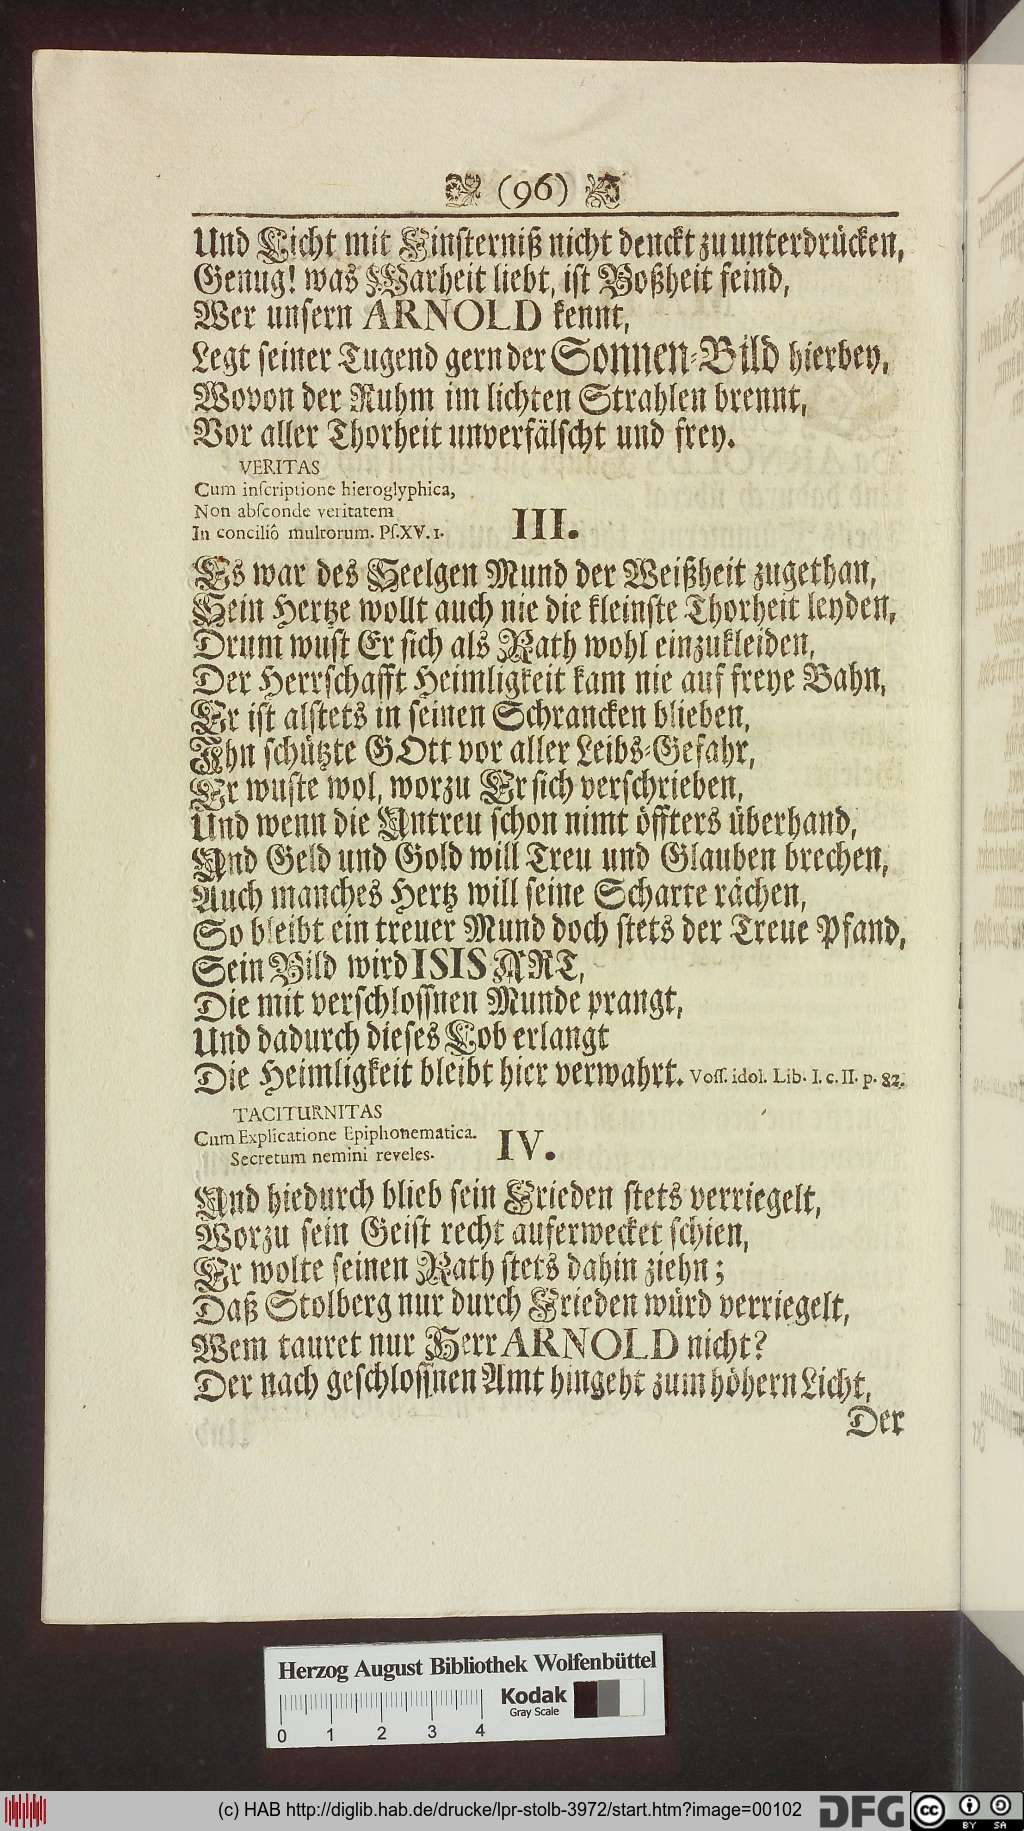 (96)
Und Licht mit Finsterniß nicht denckt zu unterdrücken,
Genug! was Warheit liebt, ist Boßheit feind,
Wer unsern ARNOLD kennt,
Legt seiner Tugend gern der Sonnen-Bild hierbey,
Wovon der Ruhm im lichten Strahlen brennt,
Vor aller Thorheit unverfälscht und frey.
VERITAS
Cum inscriptione hieroglyphica,
Non absconde veritatem
In conciliô multorum. Ps.XV. 1.
III.
Es war des Seelgen Mund der Weißheit zugethan,
Sein Hertze wollt auch nie die kleinste Thorheit leyden,
Drum wust Er sich als Rath wohl einzukleiden,
Der Herrschafft Heimligkeit kam nie auf freye Bahn,
Er ist alstets in seinen Schrancken blieben,
Ihn schützte GOtt vor aller Leibs-Gefahr,
Er wuste wol, worzu Er sich verschrieben,
Und wenn die Untreu schon nimt öffters überhand,
Und Geld und Gold will Treu und Glauben brechen,
Auch manches Hertz will seine Scharte rächen,
So bleibt ein treuer Mund doch stets der Treue Pfand,
Sein Bild wird ISIS ART,
Die mit verschlossnen Munde prangt,
Und dadurch dieses Lob erlangt
Die Heimligkeit bleibt hier verwahrt. Voss. idol. Lib. I. c. II. p. 82.
TACITURNITAS
Cum Explicatione Epiphonematica.
Secretum nemini reveles.
IV.
Und hiedurch blieb sein Frieden stets verriegelt,
Worzu sein Geist recht auferwecket schien,
Er wolte seinen Rath stets dahin ziehn;
Daß Stolberg nur durch Frieden würd verriegelt,
Wem tauret nur Herr ARNOLD nicht?
Der nach geschlossnen Amt hingeht zum höhern Licht,
Der
Herzog August Bibliothek Wolfenbüttel
Kodak
Gray Scale
0 1 2 3 4
(c) HAB http://diglib.hab.de/drucke/lpr-stolb-3972/start.htm?image=00102
DFG
cc BY SA